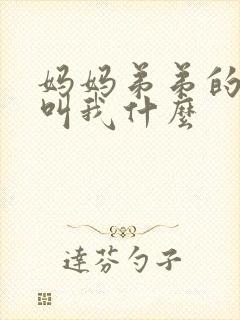 妈妈弟弟的
叫我什麽
達芬勺子